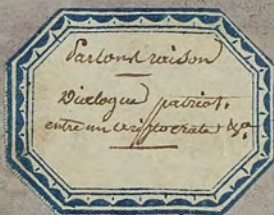 Parlons raison
Dialogue patriot.
entre un aristocrate &ca